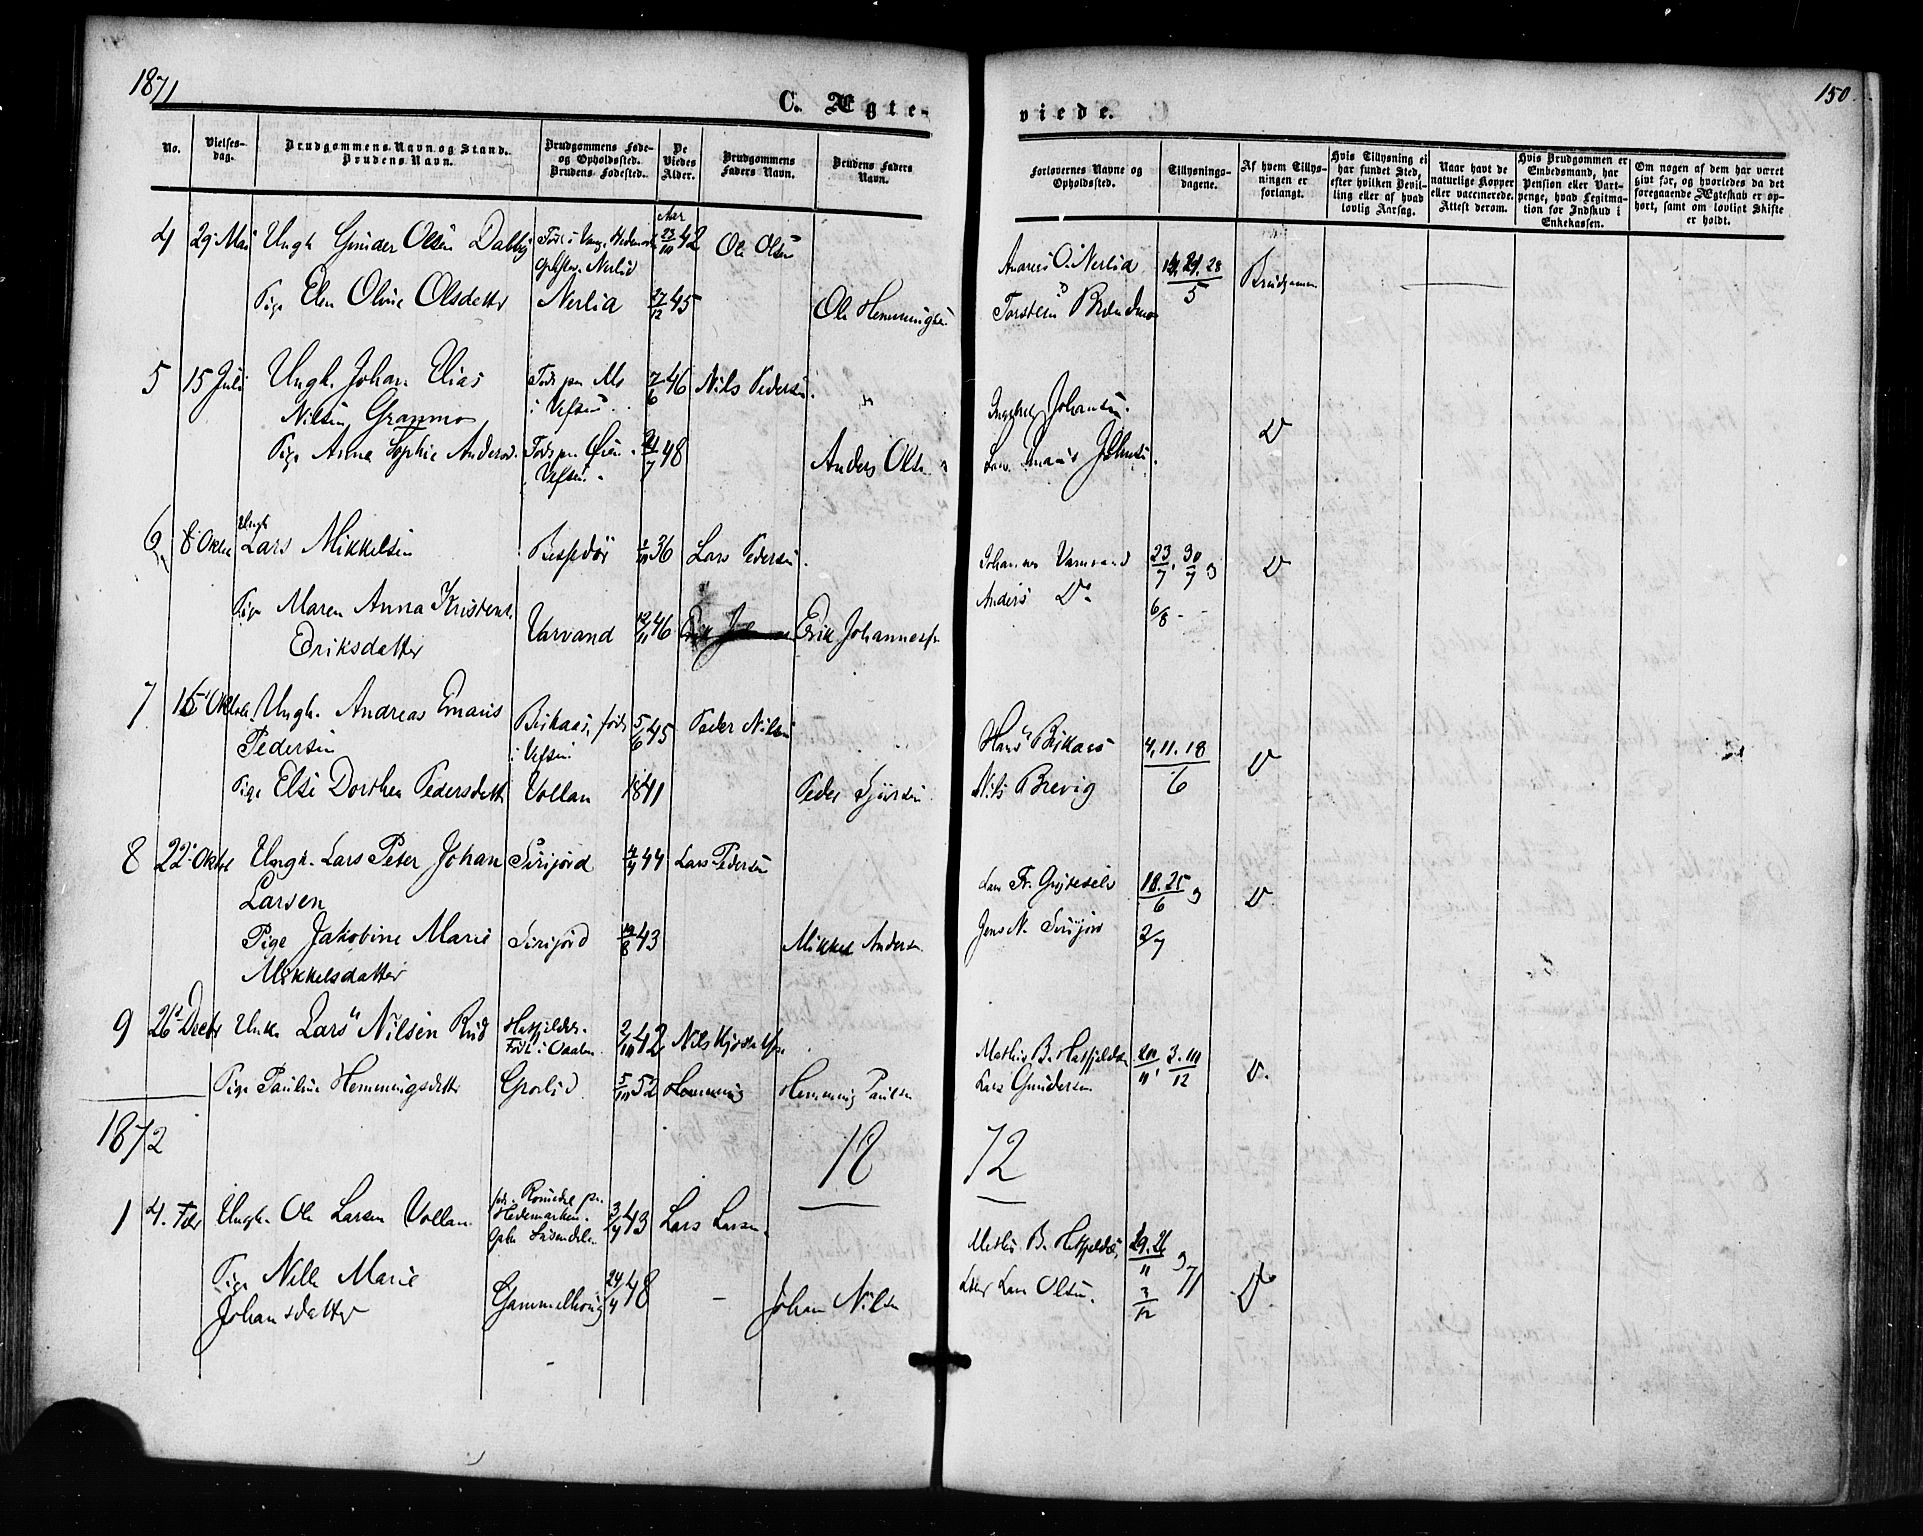 1871
150.
C. Ægte-
viede.
No.
Vielses-
dag.
Brudgommens Navn og Stand.
Brudens Navn.
Brudgommens Føde-
og Opholdssted.
Brudens Fødested.
De
Viedes
Alder.
Brudgommens
Faders Navn.
Brudens Faders
Navn.
Forlovernes Navne og
Opholdssted.
Tillysnings-
dagene.
Af hvem Tillys-
ningen er
forlangt.
Hvis Tillysning ei
har fundet Sted,
efter hvilken Bevil-
ling eller af hvad
lovlig Aarsag.
Naar havt de
naturlige Kopper
eller vaccinerede.
Attest derom.
Hvis Brudgommen er
Embedsmand, har
Pension eller Vart-
penge, hvad Legitima-
tion for Indskud i
Enkekassen.
Om nogen af dem har været
givt før, og hvorledes da det
foregaaende Ægteskab er op-
hørt, samt om lovligt Skifte
er holdt.
4 29 Mai Ungk Gunder Olsen Dalby Født i Vang, Hedemark 23/10 42 Ole Olsen
Nerlid
Anders O. Nerlid 14. 21. 28 Brudgommen
Pige Elen Oline Olsdatter Nerlid 27/12 45 Ole Hemmingsen
Torsten Brændmo 5
5 15 Juli Ungk. Johan Elias Født paa Mo 7/6 46 Nils Pedersen.
Nilsen Granmo i Vefsen.
Johansen. D
Pige Anna Sophie Andersd. Født paa Øien 21/7 48 Anders Olsen
i Vefsen.
6 8 Oktbr Ungk Lars Mikkelsen Bessedør 36 Lars Pedersen.
Johannes Varnvand 23/7, 30/7 og D
Anders Do 6/8 -
Pige Maren Anna Kristens. Varvand 12/11 46 Erik Johannessen
Eriksdatter
7 15 Oktobr Ungk. Andreas Emaus Birkaas, født 5/6 45 Peder Nilsen
Pedersen i Vefsen.
Hans Birkaas 4. 11. 18 D
Pige Else Dorthea Pedersdatt Vollan 1841 Peder Sjursen
Nils Brevig 6
8 22 Oktbr Ungk. Lars Peter Johan Sirijord 4/4 44 Lars Pedersen
Larsen
18. 25/6 og D
Pige Jakobine Marie Sirijord 19/8 43 Mikkel Andersen
Mikkelsdatter
Jens N. Sirijord 2/7
9 26 Decbr Unk. Lars Nilsen Rud Hatfjelddal. 2/10 42 Nils
Mathis B. Hatfjelddal 3. 10/12 D.
Pige Pauline Hemmingsdatter Grovlid 5/10 52 Hemming Hemming Paulsen
Lars Gundersen
1872
18 72
1 4. Febr Ungk. Ole Larsen Vollan født Romedal pr. 3/4 43 Lars Larsen.
Hedemarken.
Mathis B. Hatfjelddal, 19. 26/11 og 71 D
Pige Nelle Marie Gammelhoug 24/4 48 - Johan Nilsen
Johansdatter
Lars Olsen. 3/12